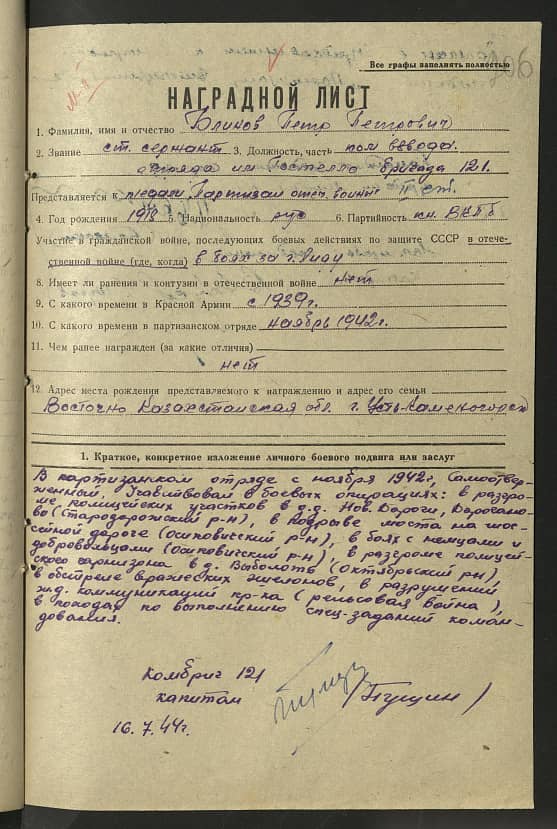 Все графы заполнять полностью
НАГРАДНОЙ ЛИСТ
1. Фамилия, имя и отчество Блинов Петр Петрович
2. Звание ст. сержант 3. Должность, часть пом взвода
отряда им Гастелло бригада 121.
Представляется к медали "Партизан отеч. войны" II ст.
4. Год рождения 1918 5. Национальность рус 6. Партийность кн. ВКПб
Участие в гражданской войне, последующих боевых действиях по защите СССР в отече-
ственной войне (где, когда) в боях за г. Лиду
8. Имеет ли ранения и контузии в отечественной войне нет
9. С какого времени в Красной Армии с 1939г.
10. С какого времени в партизанском отряде ноябрь 1942г.
11. Чем ранее награжден (за какие отличия)
нет
12. Адрес места рождения представляемого к награждению и адрес его семьи
Восточно Казахстанская обл. г. Усть-Каменогорск
1. Краткое, конкретное изложение личного боевого подвига или заслуг
В партизанском отряде с ноября 1942г, Самоотвер-
женный, Участвовал в боевых операциях: в разгро-
ме полицейских участков в д.д. Нов. Дороги, Дороганово
(Стародорожский р-н), в подрыве моста на шос-
сейной дороге (Осиповичский р-н), в боях с немцами и
добровольцами (Осиповичский р-н), в разгроме полицей-
ского гарнизона в д. Выболоть (Октябрьский рн),
в обстреле вражеских эшелонов, в разрушении
ж.д. коммуникаций пр-ка (рельсовая война),
в походах по выполнению спец-заданий коман-
дования.
Комбриг 121
капитан /Пущин/
16.7.44г.